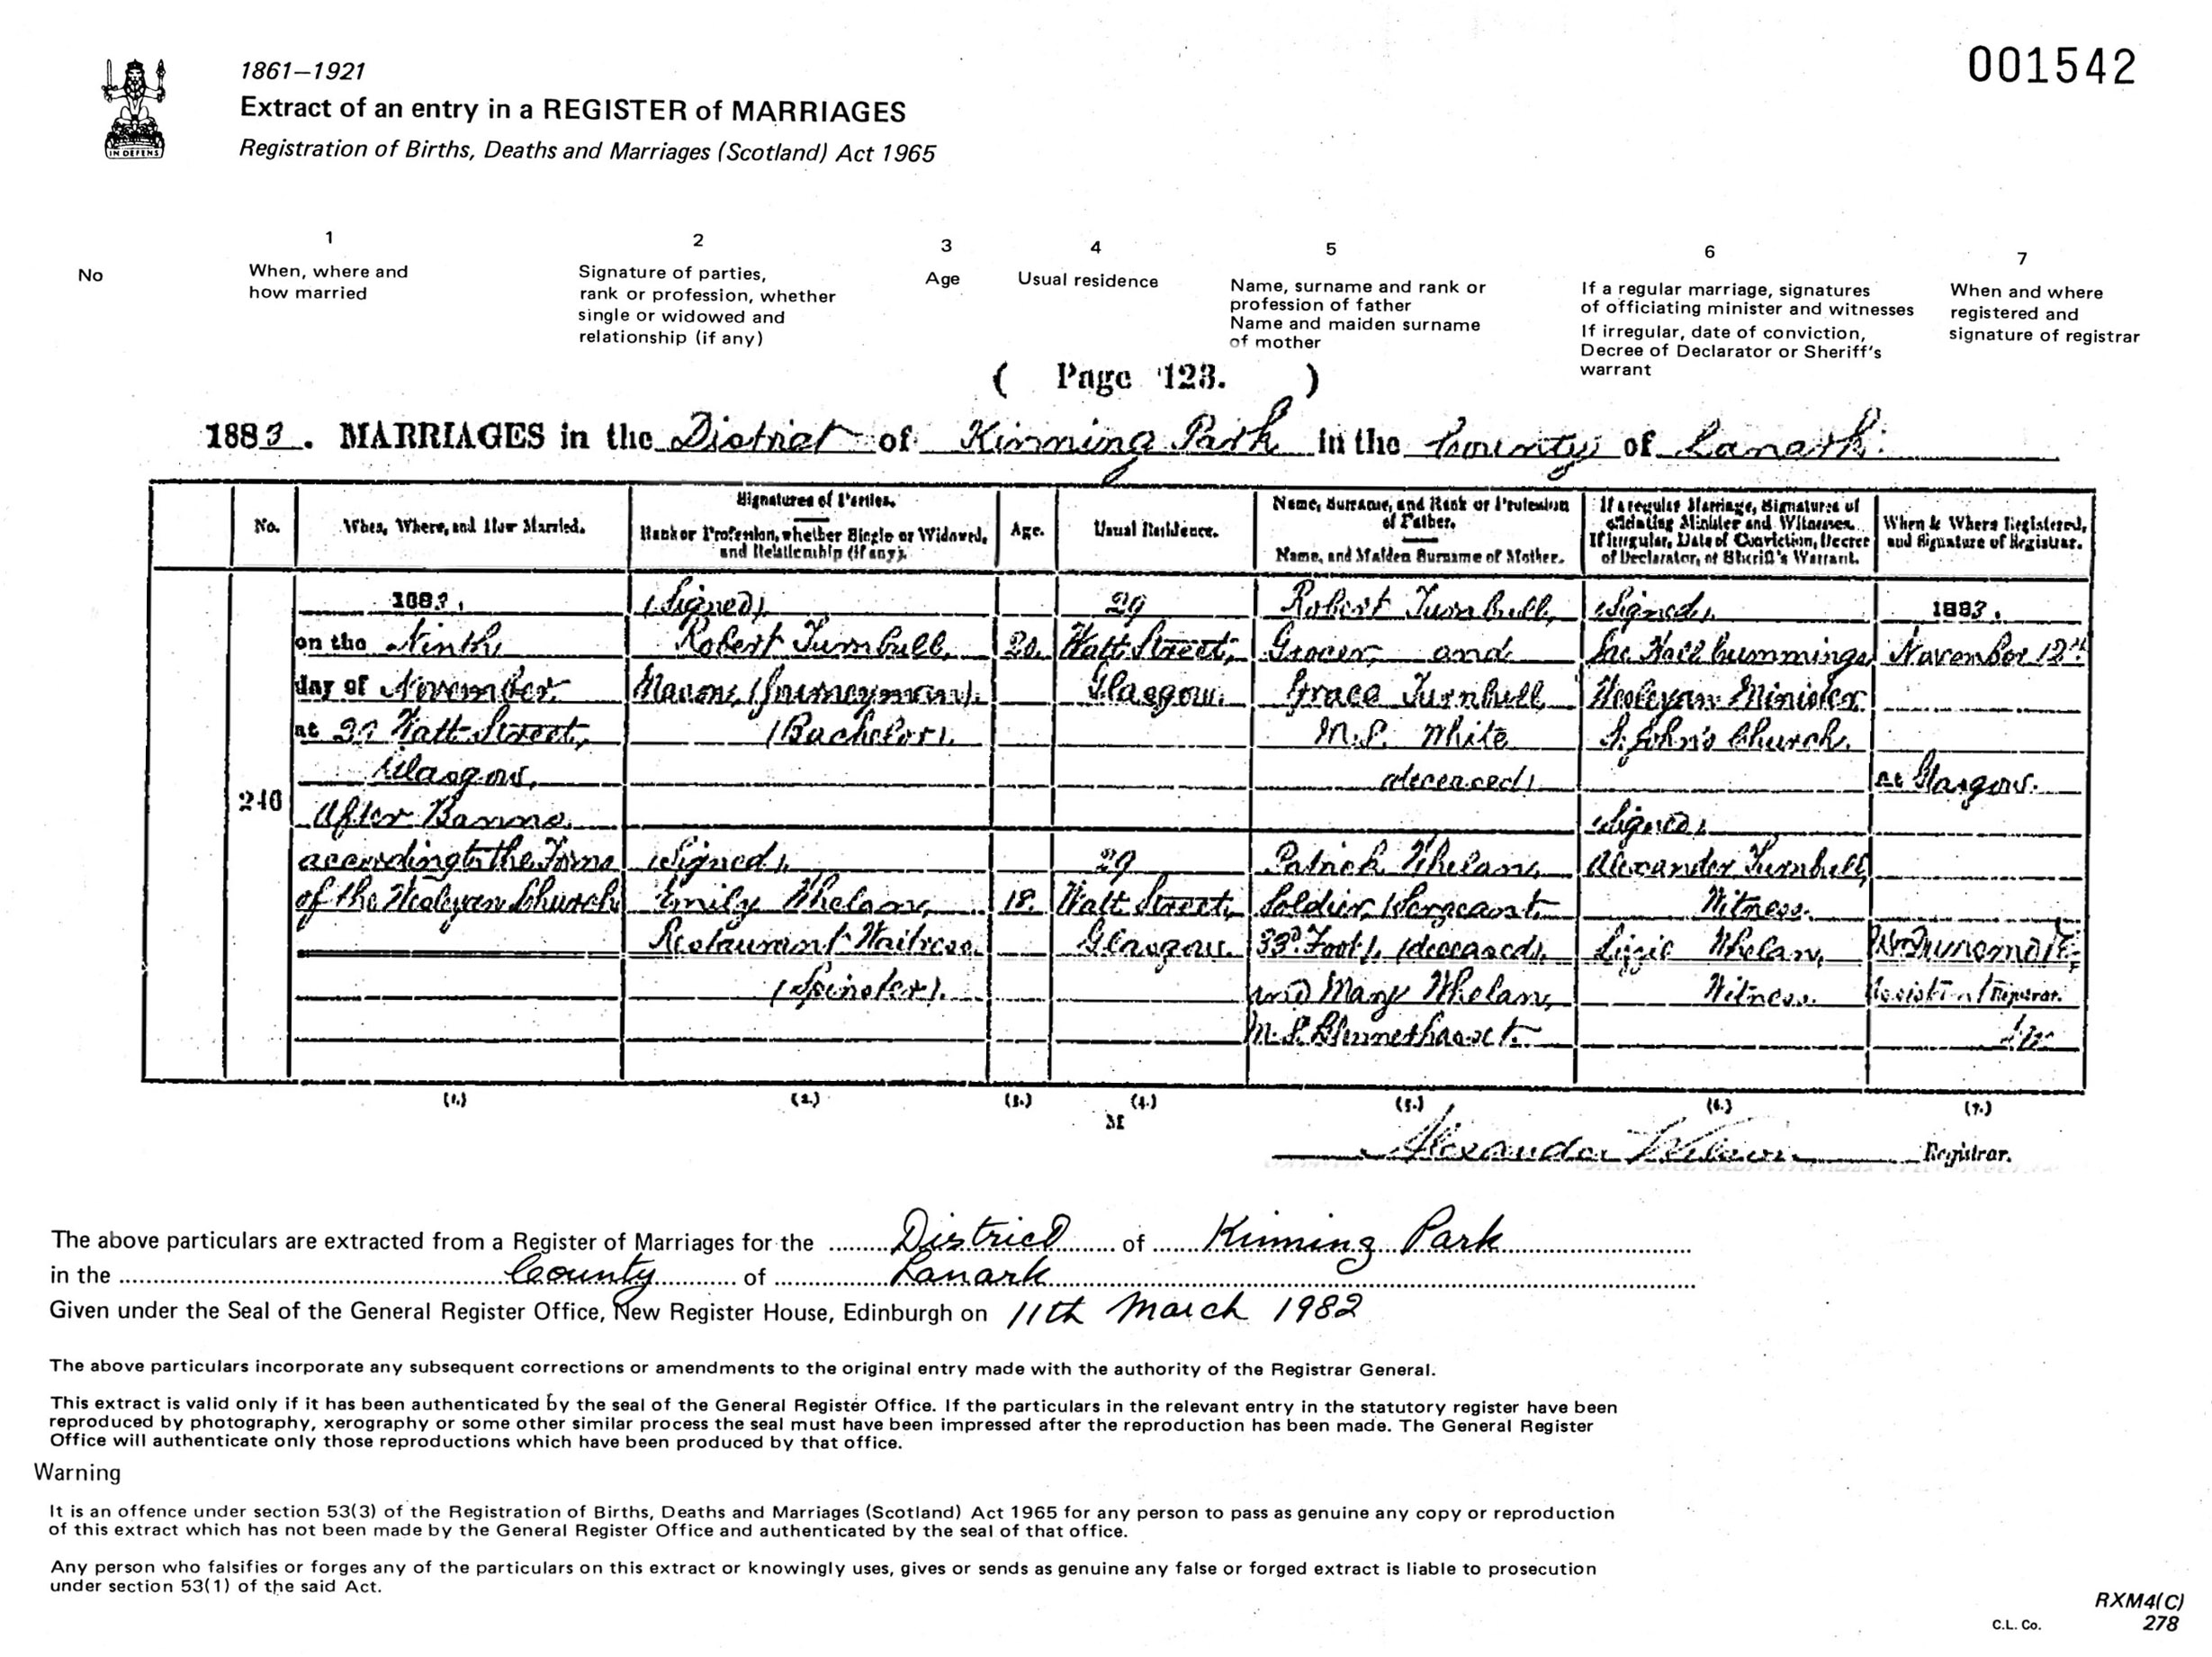 001542
1861–1921
Extract of an entry in a REGISTER of MARRIAGES
Registration of Births, Deaths and Marriages (Scotland) Act 1965
IN DEFENS
No
1
When, where and
how married
2
Signature of parties,
rank or profession, whether
single or widowed and
relationship (if any)
3
Age
4
Usual residence
5
Name, surname and rank or
profession of father
Name and maiden surname
of mother
6
If a regular marriage, signatures
of officiating minister and witnesses
If irregular, date of conviction,
Decree of Declarator or Sheriff's
warrant
7
When and where
registered and
signature of registrar
( Page 123. )
1883. MARRIAGES in the District of Kinning Park in the County of Lanark.
No.
When, Where, and How Married.
Signatures of Parties.
Rank or Profession, whether Single or Widowed,
and Relationship (if any).
Age.
Usual Residence.
Name, Surname, and Rank or Profession
of Father.
Name, and Maiden Surname of Mother.
If a regular Marriage, Signatures of
officiating Minister and Witnesses.
If irregular, Date of Conviction, Decree
of Declarator, or Sheriff's Warrant.
When & Where Registered,
and Signature of Registrar.
246
1883,
on the Ninth
day of November
at 29 Watt Street,
Glasgow,
After Banns
according to the Forms
of the Wesleyan Church
(Signed)
Robert Turnbull,
Mason, (Journeyman).
(Bachelor).
20.
29
Watt Street,
Glasgow.
Robert Turnbull,
Grocer, and
Grace Turnbull
M.S. White
(deceased)
(Signed)
Hall Cummings
Wesleyan Minister
St John's Church.
(Signed)
Alexander Turnbull,
Witness.
Lizzie Whelan,
Witness.
(Signed)
Emily Whelan,
Restaurant Waitress
(Spinster).
18.
29
Watt Street,
Glasgow.
Patrick Whelan,
Soldier, (Sergeant
33d Foot), (deceased),
and Mary Whelan,
M.S. Blennerhasset.
1883.
November 12th
at Glasgow.
Assistant Registrar.
(1.)
(2.)
(3.)
(4.)
(5.)
(6.)
(7.)
M
Alexander Registrar.
The above particulars are extracted from a Register of Marriages for the District of Kinning Park
in the County of Lanark
Given under the Seal of the General Register Office, New Register House, Edinburgh on 11th March 1982
The above particulars incorporate any subsequent corrections or amendments to the original entry made with the authority of the Registrar General.
This extract is valid only if it has been authenticated by the seal of the General Register Office. If the particulars in the relevant entry in the statutory register have been
reproduced by photography, xerography or some other similar process the seal must have been impressed after the reproduction has been made. The General Register
Office will authenticate only those reproductions which have been produced by that office.
Warning
It is an offence under section 53(3) of the Registration of Births, Deaths and Marriages (Scotland) Act 1965 for any person to pass as genuine any copy or reproduction
of this extract which has not been made by the General Register Office and authenticated by the seal of that office.
Any person who falsifies or forges any of the particulars on this extract or knowingly uses, gives or sends as genuine any false or forged extract is liable to prosecution
under section 53(1) of the said Act.
RXM4(C)
278
C.L. Co.